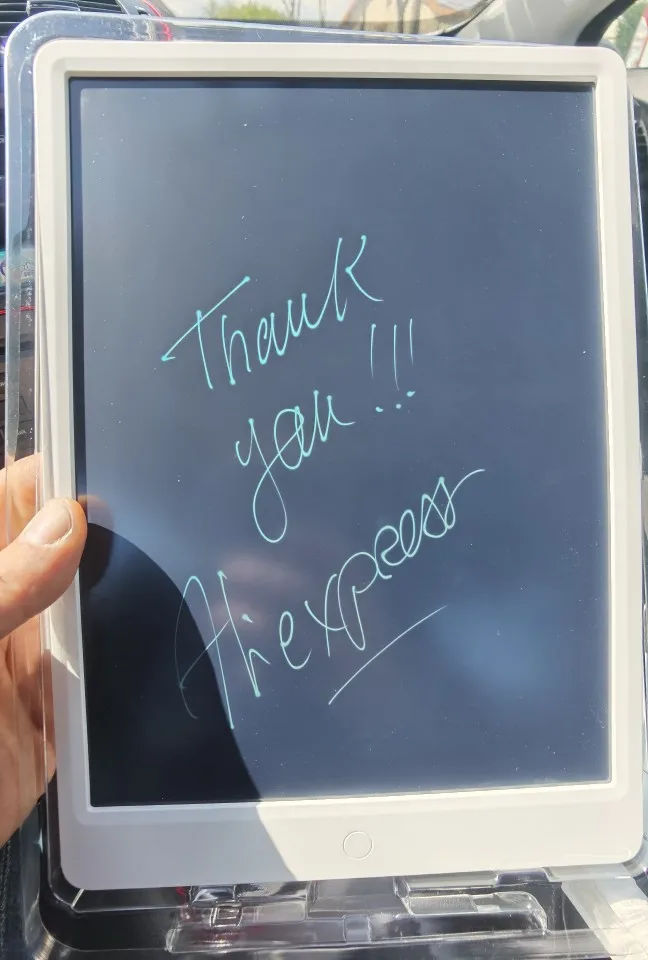 Thank
you !!!
Aliexpress